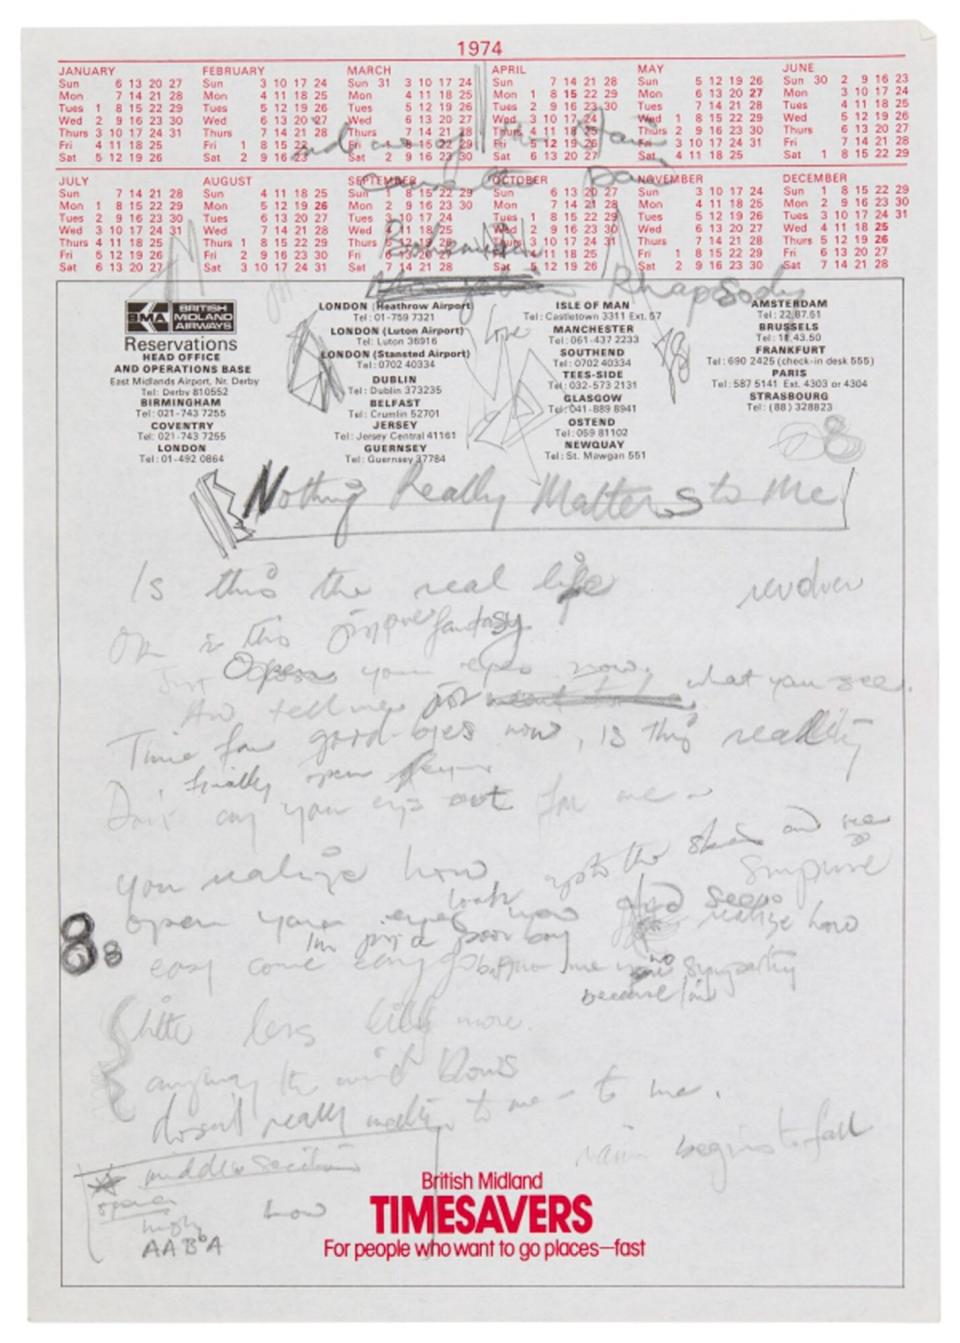 1974
JANUARY
Sun 6 13 20 27
Mon 7 14 21 28
Tues 1 8 15 22 29
Wed 2 9 16 23 30
Thurs 3 10 17 24 31
Fri 4 11 18 25
Sat 5 12 19 26
FEBRUARY
Sun 3 10 17 24
Mon 4 11 18 25
Tues 5 12 19 26
Wed 6 13 20 27
Thurs 7 14 21 28
Fri 1 8 15 22
Sat 2 9 16 23
MARCH
Sun 31 3 10 17 24
Mon 4 11 18 25
Tues 5 12 19 26
Wed 6 13 20 27
Thurs 7 14 21 28
Fri 1 8 15 22 29
Sat 2 9 16 23 30
APRIL
Sun 7 14 21 28
Mon 1 8 15 22 29
Tues 2 9 16 23 30
Wed 3 10 17 24
Thurs 4 11 18 25
Fri 5 12 19 26
Sat 6 13 20 27
MAY
Sun 5 12 19 26
Mon 6 13 20 27
Tues 7 14 21 28
Wed 1 8 15 22 29
Thurs 2 9 16 23 30
Fri 3 10 17 24 31
Sat 4 11 18 25
JUNE
Sun 30 2 9 16 23
Mon 3 10 17 24
Tues 4 11 18 25
Wed 5 12 19 26
Thurs 6 13 20 27
Fri 7 14 21 28
Sat 1 8 15 22 29
JULY
Sun 7 14 21 28
Mon 1 8 15 22 29
Tues 2 9 16 23 30
Wed 3 10 17 24 31
Thurs 4 11 18 25
Fri 5 12 19 26
Sat 6 13 20 27
AUGUST
Sun 4 11 18 25
Mon 5 12 19 26
Tues 6 13 20 27
Wed 7 14 21 28
Thurs 1 8 15 22 29
Fri 2 9 16 23 30
Sat 3 10 17 24 31
SEPTEMBER
Sun 1 8 15 22 29
Mon 2 9 16 23 30
Tues 3 10 17 24
Wed 4 11 18 25
Thurs 5 12 19 26
Fri 6 13 20 27
Sat 7 14 21 28
OCTOBER
Sun 6 13 20 27
Mon 7 14 21 28
Tues 1 8 15 22 29
Wed 2 9 16 23 30
Thurs 3 10 17 24 31
Fri 4 11 18 25
Sat 5 12 19 26
NOVEMBER
Sun 3 10 17 24
Mon 4 11 18 25
Tues 5 12 19 26
Wed 6 13 20 27
Thurs 7 14 21 28
Fri 1 8 15 22 29
Sat 2 9 16 23 30
DECEMBER
Sun 1 8 15 22 29
Mon 2 9 16 23 30
Tues 3 10 17 24 31
Wed 4 11 18 25
Thurs 5 12 19 26
Fri 6 13 20 27
Sat 7 14 21 28
Bohemian
Rhapsody
BMA BRITISH MIDLAND AIRWAYS
Reservations
HEAD OFFICE
AND OPERATIONS BASE
East Midlands Airport, Nr. Derby
Tel: Derby 810552
BIRMINGHAM
Tel: 021-743 7255
COVENTRY
Tel: 021-743 7255
LONDON
Tel: 01-492 0864
LONDON (Heathrow Airport)
Tel: 01-759 7321
LONDON (Luton Airport)
Tel: Luton 36916
LONDON (Stansted Airport)
Tel: 0702 40334
DUBLIN
Tel: Dublin 373235
BELFAST
Tel: Crumlin 52701
JERSEY
Tel: Jersey Central 41161
GUERNSEY
Tel: Guernsey 37784
love
ISLE OF MAN
Tel: Castletown 3311 Ext. 57
MANCHESTER
Tel: 061-437 2233
SOUTHEND
Tel: 0702 40334
TEES-SIDE
Tel: 032-573 2131
GLASGOW
Tel: 041-889 8941
OSTEND
Tel: 059 81102
NEWQUAY
Tel: St. Mawgan 551
AMSTERDAM
Tel: 22.87.61
BRUSSELS
Tel: 18.43.50
FRANKFURT
Tel: 690 2425 (check-in desk 555)
PARIS
Tel: 587 5141 Ext. 4303 or 4304
STRASBOURG
Tel: (88) 328823
Nothing Really Matters to Me
Is this the real life
is this fantasy
Just Open your eyes now
And tell me what you see.
Time for good-byes now, is this reality
finally open
your eyes out for me
up to the skies and see
you realize how surprise
look
open your eyes now and seeno
realize how
I'm just a poor boy
easy come easy go no sympathy
because I'm
little less little more.
anyway the wind blows
doesn't really matter to me - to me.
rain begins to fall
middle section
opera
high
how
AABbA
British Midland
TIMESAVERS
For people who want to go places—fast